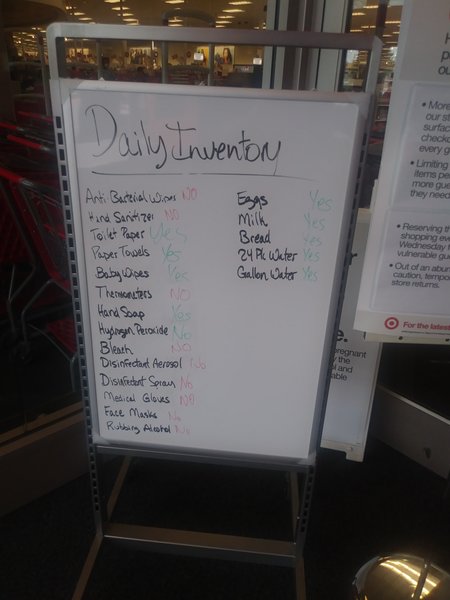 Daily Inventory
Anti Bacterial Wipes NO
Hand Sanitizer NO
Toilet Paper Yes
Paper Towels Yes
Baby Wipes Yes
Thermometers NO
Hand Soap Yes
Hydrogen Peroxide No
Bleach NO
Disinfectant Aerosol No
Disinfectant Spray No
Medical Gloves NO
Face Masks No
Rubbing Alcohol No
Eggs Yes
Milk Yes
Bread Yes
24 Pk Water Yes
Gallon Water Yes
• More
our st
surfac
checko
every g
• Limiting
items pe
more gue
they need
• Reserving th
shopping eve
Wednesday f
vulnerable gu
• Out of an abun
caution, tempo
store returns.
For the latest
e.
pregnant
y the
l and
able